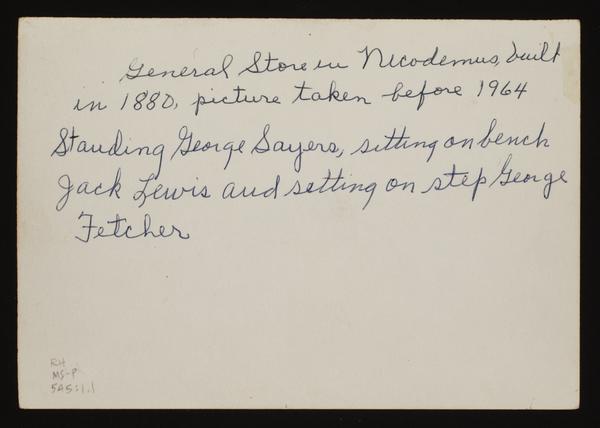 General Store in Nicodemus, built
in 1880, picture taken before 1964
Standing George Sayers, sitting on bench
Jack Lewis and setting on step George
Fetcher
RH
MS-P
545:1.1